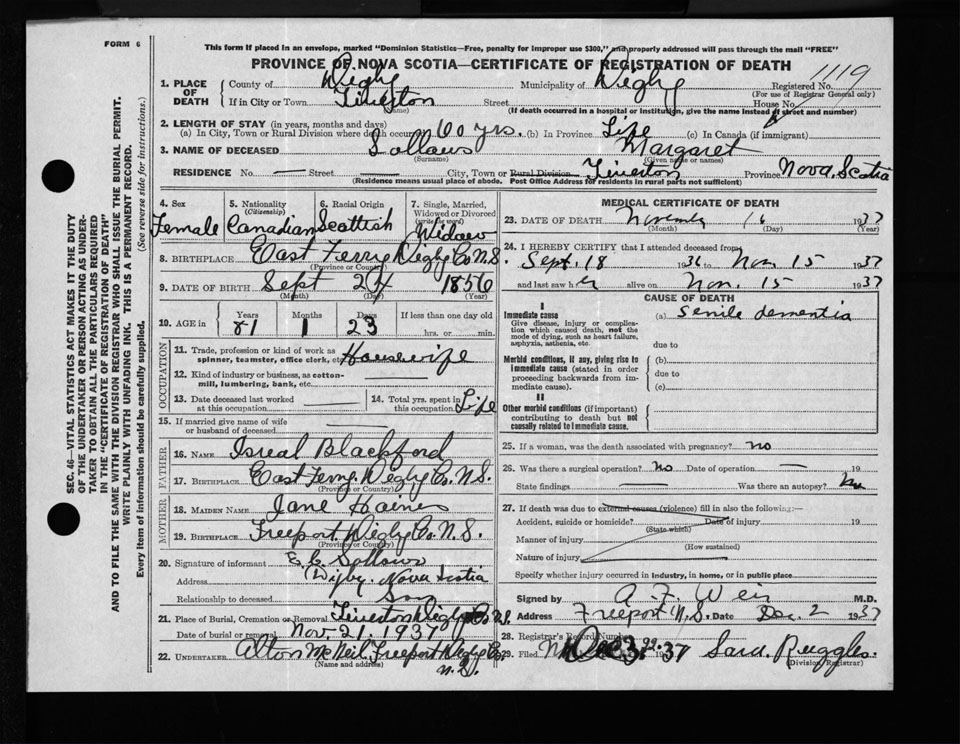 FORM 6
This form if placed in an envelope, marked "Dominion Statistics—Free, penalty for improper use $300," and properly addressed will pass through the mail "FREE"
PROVINCE OF NOVA SCOTIA—CERTIFICATE OF REGISTRATION OF DEATH
1119
1. PLACE OF DEATH
County of Digby Municipality of Digby Registered No.
(For use of Registrar General only)
If in City or Town Tiverton Street House No.
(Name)
(If death occurred in a hospital or institution, give the name instead of street and number)
2. LENGTH OF STAY (in years, months and days)
(a) In City, Town or Rural Division where death occurred 60 yrs. (b) In Province Life (c) In Canada (if immigrant)
3. NAME OF DECEASED Sollows Margaret
(Surname) (Given name or names)
RESIDENCE No. — Street — City, Town or Rural Division Tiverton Province Nova Scotia
(Residence means usual place of abode. Post Office Address for residents in rural parts not sufficient)
4. Sex Female
5. Nationality (Citizenship) Canadian
6. Racial Origin Scottish
7. Single, Married, Widowed or Divorced (write the word) Widow
8. BIRTHPLACE East Ferry Digby Co N.S.
(Province or County)
9. DATE OF BIRTH Sept 24 1856
(Month) (Day) (Year)
10. AGE in Years 81 Months 1 Days 23 If less than one day old
hrs. or min.
OCCUPATION
11. Trade, profession or kind of work as spinner, teamster, office clerk, etc. Housewife
12. Kind of industry or business, as cotton-mill, lumbering, bank, etc. —
13. Date deceased last worked at this occupation —
14. Total yrs. spent in this occupation Life
15. If married give name of wife or husband of deceased —
FATHER
16. NAME Isreal Blackford
17. BIRTHPLACE East Ferry. Digby Co. N.S.
(Province or Country)
MOTHER
18. MAIDEN NAME Jane Haines
19. BIRTHPLACE Freeport. Digby Co. N.S.
(Province or Country)
20. Signature of informant E. C. Sollows
Address Digby. Nova Scotia
Relationship to deceased Son
21. Place of Burial, Cremation or Removal Tiverton Digby Co N.S.
Date of burial or removal Nov. 21. 1937
22. UNDERTAKER Alton McNeil, Freeport Digby Co.
(Name and address) N.S.
MEDICAL CERTIFICATE OF DEATH
23. DATE OF DEATH November 16 1937
(Month) (Day) (Year)
24. I HEREBY CERTIFY that I attended deceased from
Sept. 18 1936 to Nov 15 1937
and last saw her alive on Nov. 15 1937
CAUSE OF DEATH
I
Immediate cause
Give disease, injury or complication which caused death, not the mode of dying, such as heart failure, asphyxia, asthenia, etc.
(a) senile dementia
due to
Morbid conditions, if any, giving rise to immediate cause (stated in order proceeding backwards from immediate cause).
(b)
due to
(c)
II
Other morbid conditions (if important) contributing to death but not causally related to immediate cause.
25. If a woman, was the death associated with pregnancy? no
26. Was there a surgical operation? no Date of operation — 19
State findings — Was there an autopsy? no
27. If death was due to external causes (violence) fill in also the following:—
Accident, suicide or homicide? Date of injury 19
(State which)
Manner of injury
(How sustained)
Nature of injury
Specify whether injury occurred in industry, in home, or in public place
Signed by A. F. Weir M.D.
Address Freeport N.S. Date Dec. 2 1937
28. Registrar's Record Number
29. Filed 1937 Sara. Ruggles.
(Division Registrar)
SEC. 46—VITAL STATISTICS ACT MAKES IT THE DUTY
OF THE UNDERTAKER OR PERSON ACTING AS UNDER-
TAKER TO OBTAIN ALL THE PARTICULARS REQUIRED
IN THE "CERTIFICATE OF REGISTRATION OF DEATH"
AND TO FILE THE SAME WITH THE DIVISION REGISTRAR WHO SHALL ISSUE THE BURIAL PERMIT.
WRITE PLAINLY WITH UNFADING INK. THIS IS A PERMANENT RECORD.
Every item of information should be carefully supplied. (See reverse side for instructions.)